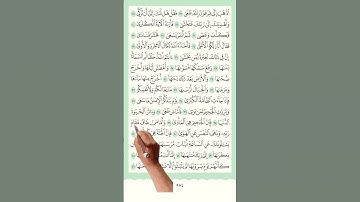 ٱذْهَبْ إِلَىٰ فِرْعَوْنَ إِنَّهُۥ طَغَىٰ ١٧ فَقُلْ هَل لَّكَ إِلَىٰٓ أَن تَزَكَّىٰ ١٨
وَأَهْدِيَكَ إِلَىٰ رَبِّكَ فَتَخْشَىٰ ١٩ فَأَرَىٰهُ ٱلْءَايَةَ ٱلْكُبْرَىٰ ٢٠
فَكَذَّبَ وَعَصَىٰ ٢١ ثُمَّ أَدْبَرَ يَسْعَىٰ ٢٢ فَحَشَرَ فَنَادَىٰ ٢٣
فَقَالَ أَنَا۠ رَبُّكُمُ ٱلْأَعْلَىٰ ٢٤ فَأَخَذَهُ ٱللَّهُ نَكَالَ ٱلْءَاخِرَةِ وَٱلْأُولَىٰٓ ٢٥
إِنَّ فِى ذَٰلِكَ لَعِبْرَةً لِّمَن يَخْشَىٰٓ ٢٦ ءَأَنتُمْ أَشَدُّ خَلْقًا أَمِ ٱلسَّمَآءُ
بَنَىٰهَا ٢٧ رَفَعَ سَمْكَهَا فَسَوَّىٰهَا ٢٨ وَأَغْطَشَ لَيْلَهَا وَأَخْرَجَ
ضُحَىٰهَا ٢٩ وَٱلْأَرْضَ بَعْدَ ذَٰلِكَ دَحَىٰهَآ ٣٠ أَخْرَجَ مِنْهَا مَآءَهَا
وَمَرْعَىٰهَا ٣١ وَٱلْجِبَالَ أَرْسَىٰهَا ٣٢ مَتَٰعًا لَّكُمْ وَلِأَنْعَٰمِكُمْ ٣٣
فَإِذَا جَآءَتِ ٱلطَّآمَّةُ ٱلْكُبْرَىٰ ٣٤ يَوْمَ يَتَذَكَّرُ ٱلْإِنسَٰنُ مَا سَعَىٰ ٣٥
وَبُرِّزَتِ ٱلْجَحِيمُ لِمَن يَرَىٰ ٣٦ فَأَمَّا مَن طَغَىٰ ٣٧ وَءَاثَرَ ٱلْحَيَوٰةَ
ٱلدُّنْيَا ٣٨ فَإِنَّ ٱلْجَحِيمَ هِىَ ٱلْمَأْوَىٰ ٣٩ وَأَمَّا مَنْ خَافَ مَقَامَ
رَبِّهِۦ وَنَهَى ٱلنَّفْسَ عَنِ ٱلْهَوَىٰ ٤٠ فَإِنَّ ٱلْجَنَّةَ
يَسْـَٔلُونَكَ عَنِ ٱلسَّاعَةِ أَيَّانَ مُرْسَىٰهَا
ذِكْرَىٰهَآ ٤٣ إِلَىٰ رَبِّكَ مُنتَهَىٰهَآ ٤٤ إِنَّمَآ أَنتَ
كَأَنَّهُمْ يَوْمَ يَرَوْنَهَا لَمْ يَلْبَثُوٓا۟ إِلَّا
٥٨٤